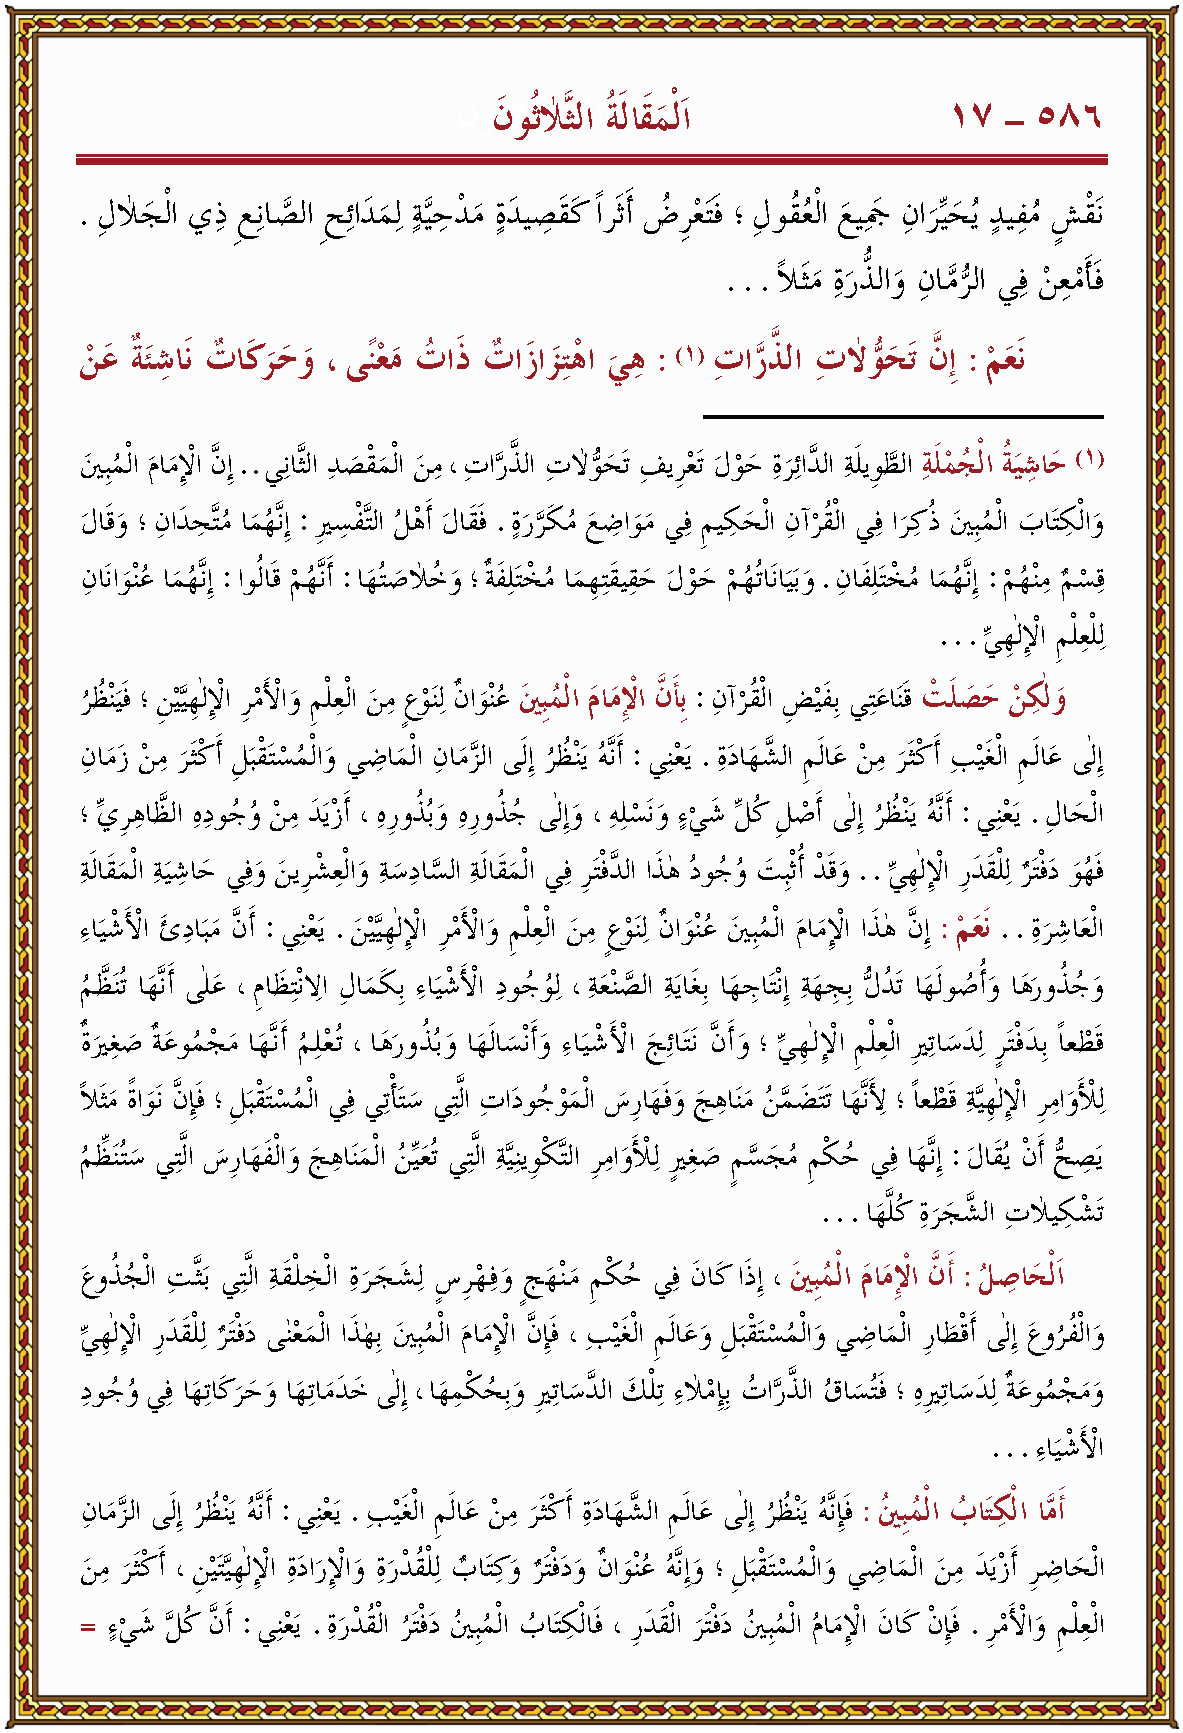 ٥٨٦ – ١٧ اَلْمَقَالَةُ الثَّلاٰثُونَ
نَقْشٍ مُفِيدٍ يُحَيِّرَانِ جَمِيعَ الْعُقُولِ ؛ فَتَعْرِضُ أَثَراً كَقَصِيدَةٍ مَدْحِيَّةٍ لِمَدَائِحِ الصَّانِعِ ذِي الْجَلاٰلِ .
فَأَمْعِنْ فِي الرُّمَّانِ وَالذُّرَةِ مَثَلاً . . .
نَعَمْ : إِنَّ تَحَوُّلاٰتِ الذَّرَّاتِ (١) : هِيَ اهْتِزَازَاتٌ ذَُاتُ مَعْنًى ، وَحَرَكَاتٌ نَاشِئَةٌ عَنْ
(١) حَاشِيَةُ الْجُمْلَةِ الطَّوِيلَةِ الدَّائِرَةِ حَوْلَ تَعْرِيفِ تَحَوُّلاٰتِ الذَّرَّاتِ ، مِنَ الْمَقْصَدِ الثَّانِي . . إِنَّ الْإِمَامَ الْمُبِينَ
وَالْكِتَابَ الْمُبِينَ ذُكِرَا فِي الْقُرْآنِ الْحَكِيمِ فِي مَوَاضِعَ مُكَرَّرَةٍ . فَقَالَ أَهْلُ التَّفْسِيرِ : إِنَّهُمَا مُتَّحِدَانِ ؛ وَقَالَ
قِسْمٌ مِنْهُمْ : إِنَّهُمَا مُخْتَلِفَانِ . وَبَيَانَاتُهُمْ حَوْلَ حَقِيقَتِهِمَا مُخْتَلِفَةٌ ؛ وَخُلاٰصَتُهَا : أَنَّهُمْ قَالُوا : إِنَّهُمَا عُنْوَانَانِ
لِلْعِلْمِ الْإِلٰهِيِّ . . .
وَلٰكِنْ حَصَلَتْ قَنَاعَتِي بِفَيْضِ الْقُرْآنِ : بِأَنَّ الْإِمَامَ الْمُبِينَ عُنْوَانٌ لِنَوْعٍ مِنَ الْعِلْمِ وَالْأَمْرِ الْإِلٰهِيَّيْنِ ؛ فَيَنْظُرُ
إِلٰى عَالَمِ الْغَيْبِ أَكْثَرَ مِنْ عَالَمِ الشَّهَادَةِ . يَعْنِي : أَنَّهُ يَنْظُرُ إِلَى الزَّمَانِ الْمَاضِي وَالْمُسْتَقْبَلِ أَكْثَرَ مِنْ زَمَانِ
الْحَالِ . يَعْنِي : أَنَّهُ يَنْظُرُ إِلٰى أَصْلِ كُلِّ شَيْءٍ وَنَسْلِهِ ، وَإِلٰى جُذُورِهِ وَبُذُورِهِ ، أَزْيَدَ مِنْ وُجُودِهِ الظَّاهِرِيِّ ؛
فَهُوَ دَفْتَرٌ لِلْقَدَرِ الْإِلٰهِيِّ . . وَقَدْ أُثْبِتَ وُجُودُ هٰذَا الدَّفْتَرِ فِي الْمَقَالَةِ السَّادِسَةِ وَالْعِشْرِينَ وَفِي حَاشِيَةِ الْمَقَالَةِ
الْعَاشِرَةِ . . نَعَمْ : إِنَّ هٰذَا الْإِمَامَ الْمُبِينَ عُنْوَانٌ لِنَوْعٍ مِنَ الْعِلْمِ وَالْأَمْرِ الْإِلٰهِيَّيْنَ . يَعْنِي : أَنَّ مَبَادِئَ الْأَشْيَاءِ
وَجُذُورَهَا وَأُصُولَهَا تَدُلُّ بِجِهَةِ إِنْتَاجِهَا بِغَايَةِ الصَّنْعَةِ ، لِوُجُودِ الْأَشْيَاءِ بِكَمَالِ الاِنْتِظَامِ ، عَلٰى أَنَّهَا تُنَظَّمُ
قَطْعاً بِدَفْتَرٍ لِدَسَاتِيرِ الْعِلْمِ الْإِلٰهِيِّ ؛ وَأَنَّ نَتَائِجَ الْأَشْيَاءِ وَأَنْسَالَهَا وَبُذُورَهَا ، تُعْلِمُ أَنَّهَا مَجْمُوعَةٌ صَغِيرَةٌ
لِلْأَوَامِرِ الْإِلٰهِيَّةِ قَطْعاً ؛ لِأَنَّهَا تَتَضَمَّنُ مَنَاهِجَ وَفَهَارِسَ الْمَوْجُودَاتِ الَّتِي سَتَأْتِي فِي الْمُسْتَقْبَلِ ؛ فَإِنَّ نَوَاةً مَثَلاً
يَصِحُّ أَنْ يُقَالَ : إِنَّهَا فِي حُكْمِ مُجَسَّمٍ صَغِيرٍ لِلْأَوَامِرِ التَّكْوِينِيَّةِ الَّتِي تُعَيِّنُ الْمَنَاهِجَ وَالْفَهَارِسَ الَّتِي سَتُنَظِّمُ
تَشْكِيلاٰتِ الشَّجَرَةِ كُلَّهَا . . .
اَلْحَاصِلُ : أَنَّ الْإِمَامَ الْمُبِينَ ، إِذَا كَانَ فِي حُكْمِ مَنْهَجٍ وَفِهْرِسٍ لِشَجَرَةِ الْخِلْقَةِ الَّتِي بَثَّتِ الْجُذُوعَ
وَالْفُرُوعَ إِلٰى أَقْطَارِ الْمَاضِي وَالْمُسْتَقْبَلِ وَعَالَمِ الْغَيْبِ ، فَإِنَّ الْإِمَامَ الْمُبِينَ بِهٰذَا الْمَعْنٰى دَفْتَرٌ لِلْقَدَرِ الْإِلٰهِيِّ
وَمَجْمُوعَةٌ لِدَسَاتِيرِهِ ؛ فَتُسَاقُ الذَّرَّاتُ بِإِمْلاٰءِ تِلْكَ الدَّسَاتِيرِ وَبِحُكْمِهَا ، إِلٰى خَدَمَاتِهَا وَحَرَكَاتِهَا فِي وُجُودِ
الْأَشْيَاءِ . . .
أَمَّا الْكِتَابُ الْمُبِينُ : فَإِنَّهُ يَنْظُرُ إِلٰى عَالَمِ الشَّهَادَةِ أَكْثَرَ مِنْ عَالَمِ الْغَيْبِ . يَعْنِي : أَنَّهُ يَنْظُرُ إِلَى الزَّمَانِ
الْحَاضِرِ أَزْيَدَ مِنَ الْمَاضِي وَالْمُسْتَقْبَلِ ؛ وَإِنَّهُ عُنْوَانٌ وَدَفْتَرٌ وَكِتَابٌ لِلْقُدْرَةِ وَالْإِرَادَةِ الْإِلٰهِيَّتَيْنِ ، أَكْثَرَ مِنَ
الْعِلْمِ وَالْأَمْرِ . فَإِنْ كَانَ الْإِمَامُ الْمُبِينُ دَفْتَرَ الْقَدَرِ ، فَالْكِتَابُ الْمُبِينُ دَفْتَرُ الْقُدْرَةِ . يَعْنِي : أَنَّ كُلَّ شَيْءٍ =